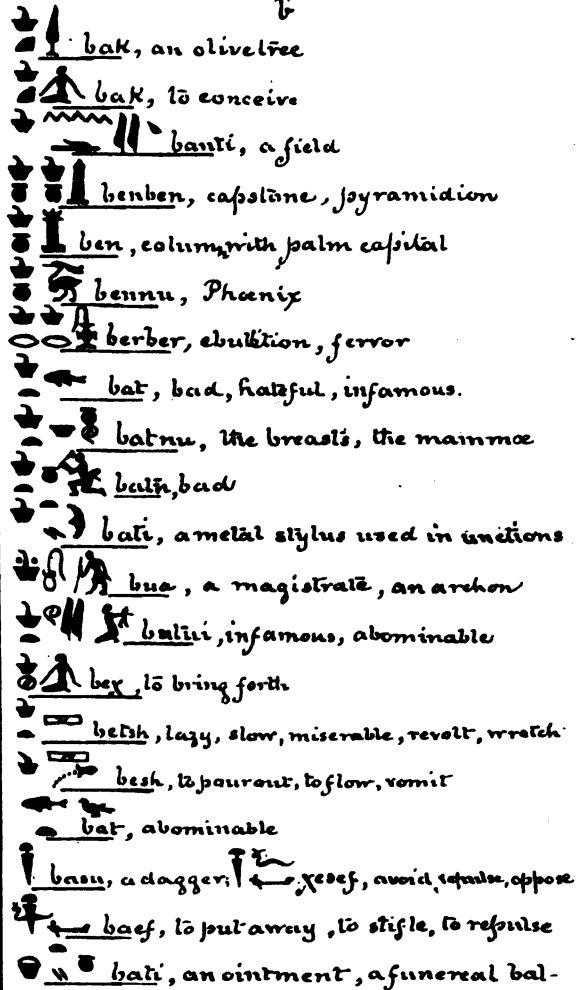 b
bak, an olive tree
bak, to conceive
banti, a field
benben, capstone, pyramidion
ben, column with palm capital
bennu, Phœnix
berber, ebulition, ferror
bat, bad, hateful, infamous.
batnu, the breasts, the mammœ
batn, bad
bati, a metal stylus used in unctions
bua, a magistrate, an archon
, infamous, abominable
beχ, to bring forth
betsh, lazy, slow, miserable, revolt, wretch
besh, to pour out, to flow, vomit
bat, abominable
basu, a dagger; χesef, avoid, repulse, oppose
baef, to put away, to stifle, to repulse
bati, an ointment, a funereal bal-